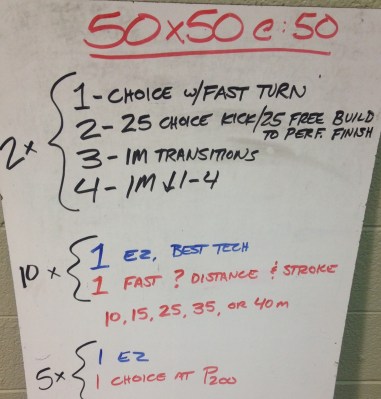 50x50 @ :50
2x { 1 - CHOICE w/FAST TURN
2 - 25 CHOICE KICK/25 FREE BUILD
TO PERF. FINISH
3 - IM TRANSITIONS
4 - IM ↓1-4
10 x { 1 EZ, BEST TECH
1 FAST ? DISTANCE & STROKE
10, 15, 25, 35, OR 40m
5x { 1 EZ
1 CHOICE AT P200